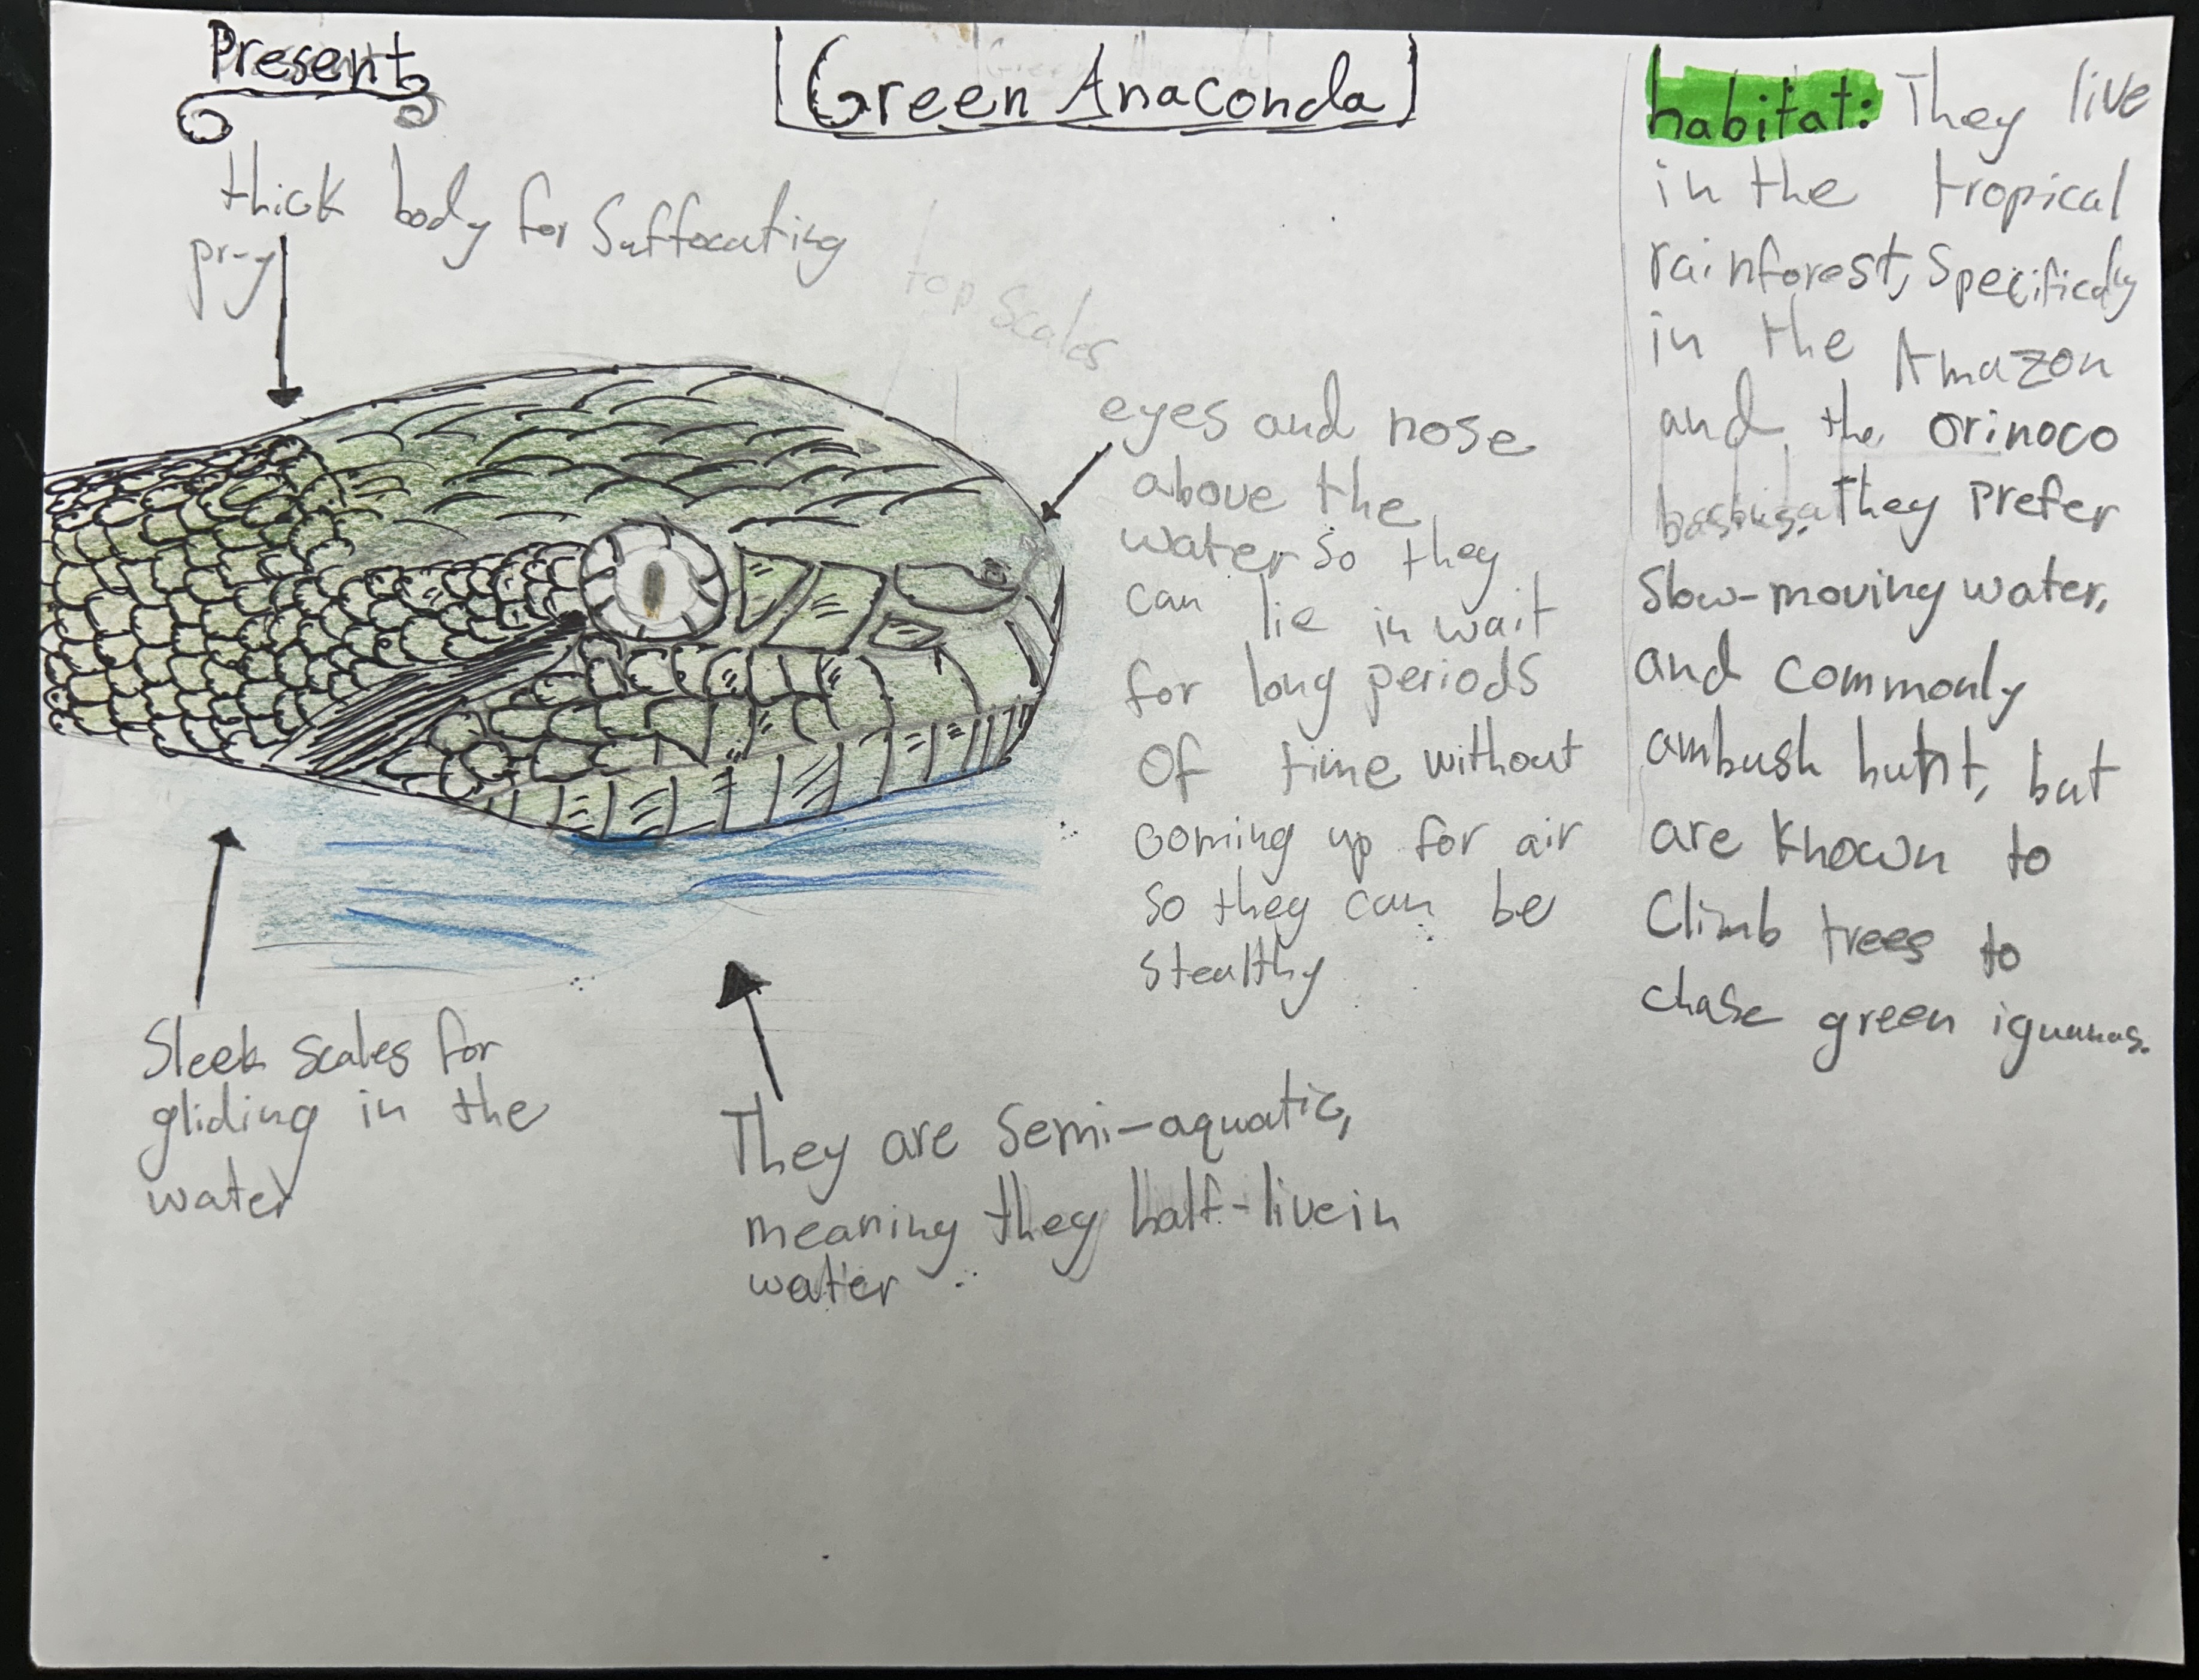 Present
Green Anaconda
thick body for Suffocating
prey
top scales
eyes and nose
above the
water so they
can lie in wait
for long periods
Of time without
coming up for air
so they can be
stealthy
Sleek scales for
gliding in the
water
They are semi-aquatic,
meaning they half-live in
water
habitat: They live
in the tropical
rainforest, Specifically
in the Amazon
and the orinoco
they prefer
Slow-moving water,
and commonly
ambush hunt, but
are known to
Climb trees to
chase green iguanas.